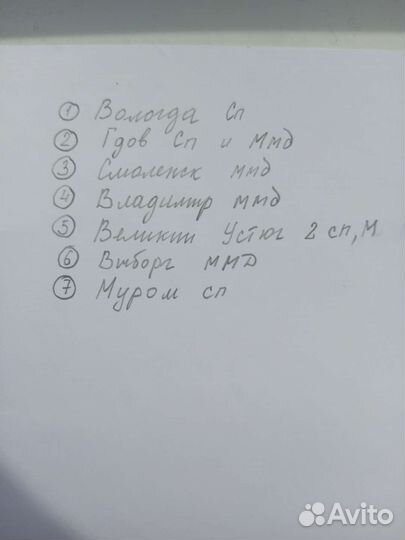 ① Вологда Сп
② Гдов Сп и ммд
③ Смоленск ммд
④ Владимир ммд
⑤ Великий Устюг 2 сп, м
⑥ Выборг ММД
⑦ Муром сп
Avito